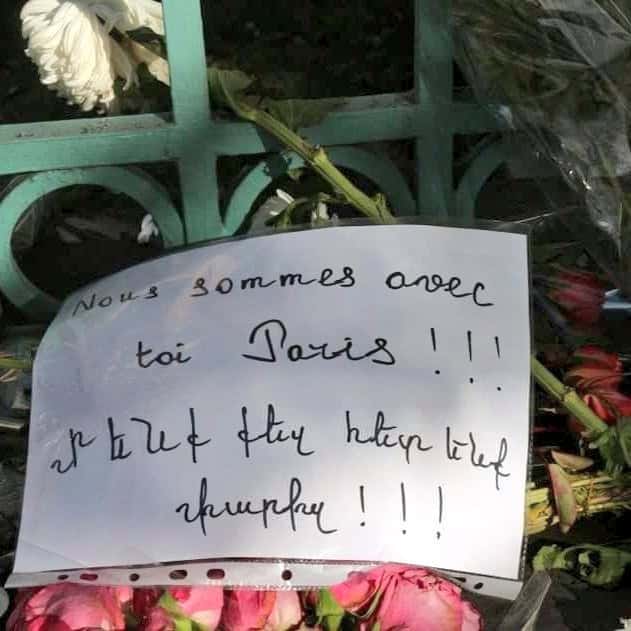 Nous sommes avec
toi Paris !!!
Մենք քեզ հետ ենք
Փարիզ !!!